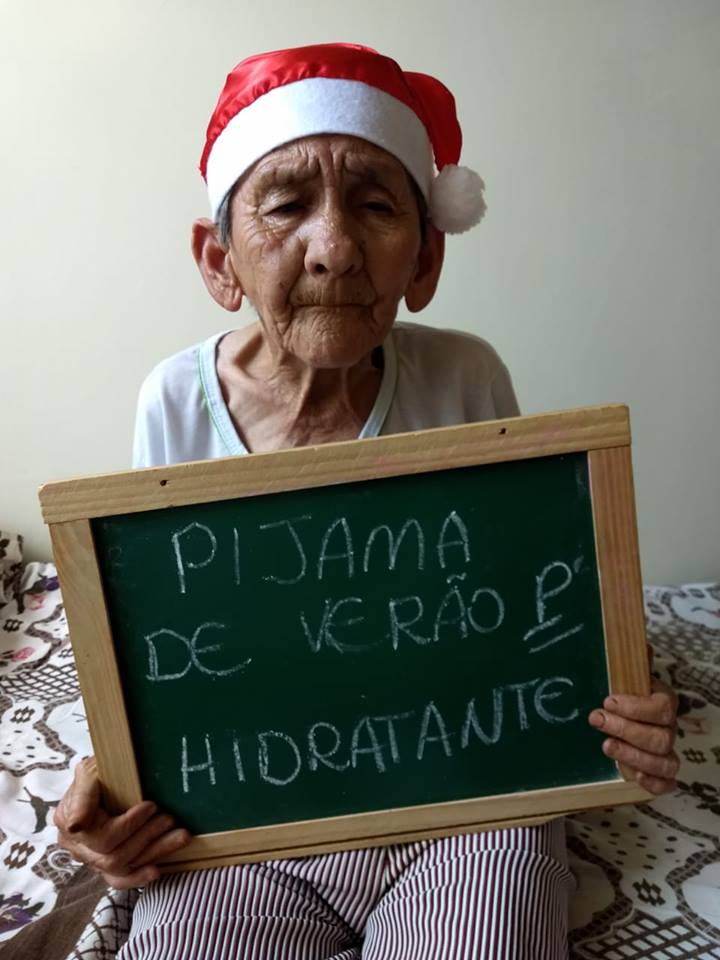 PIJAMA
DE VERÃO P
HIDRATANTE